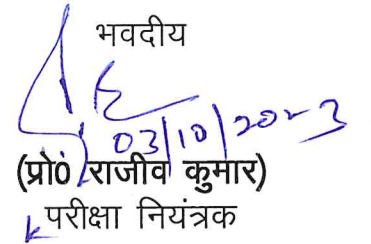 भवदीय
03/10/2023
(प्रो० राजीव कुमार)
परीक्षा नियंत्रक